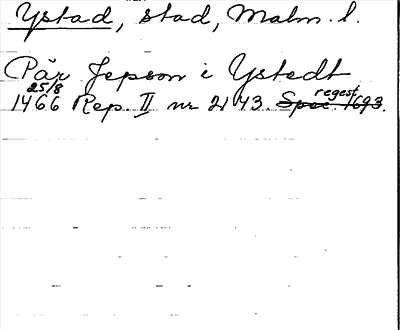 Ystad, stad, Malm. l.
Pär Jepson i Ystedt
25/8 regest
1466 Rep. II nr 2143. Spec. 1693.